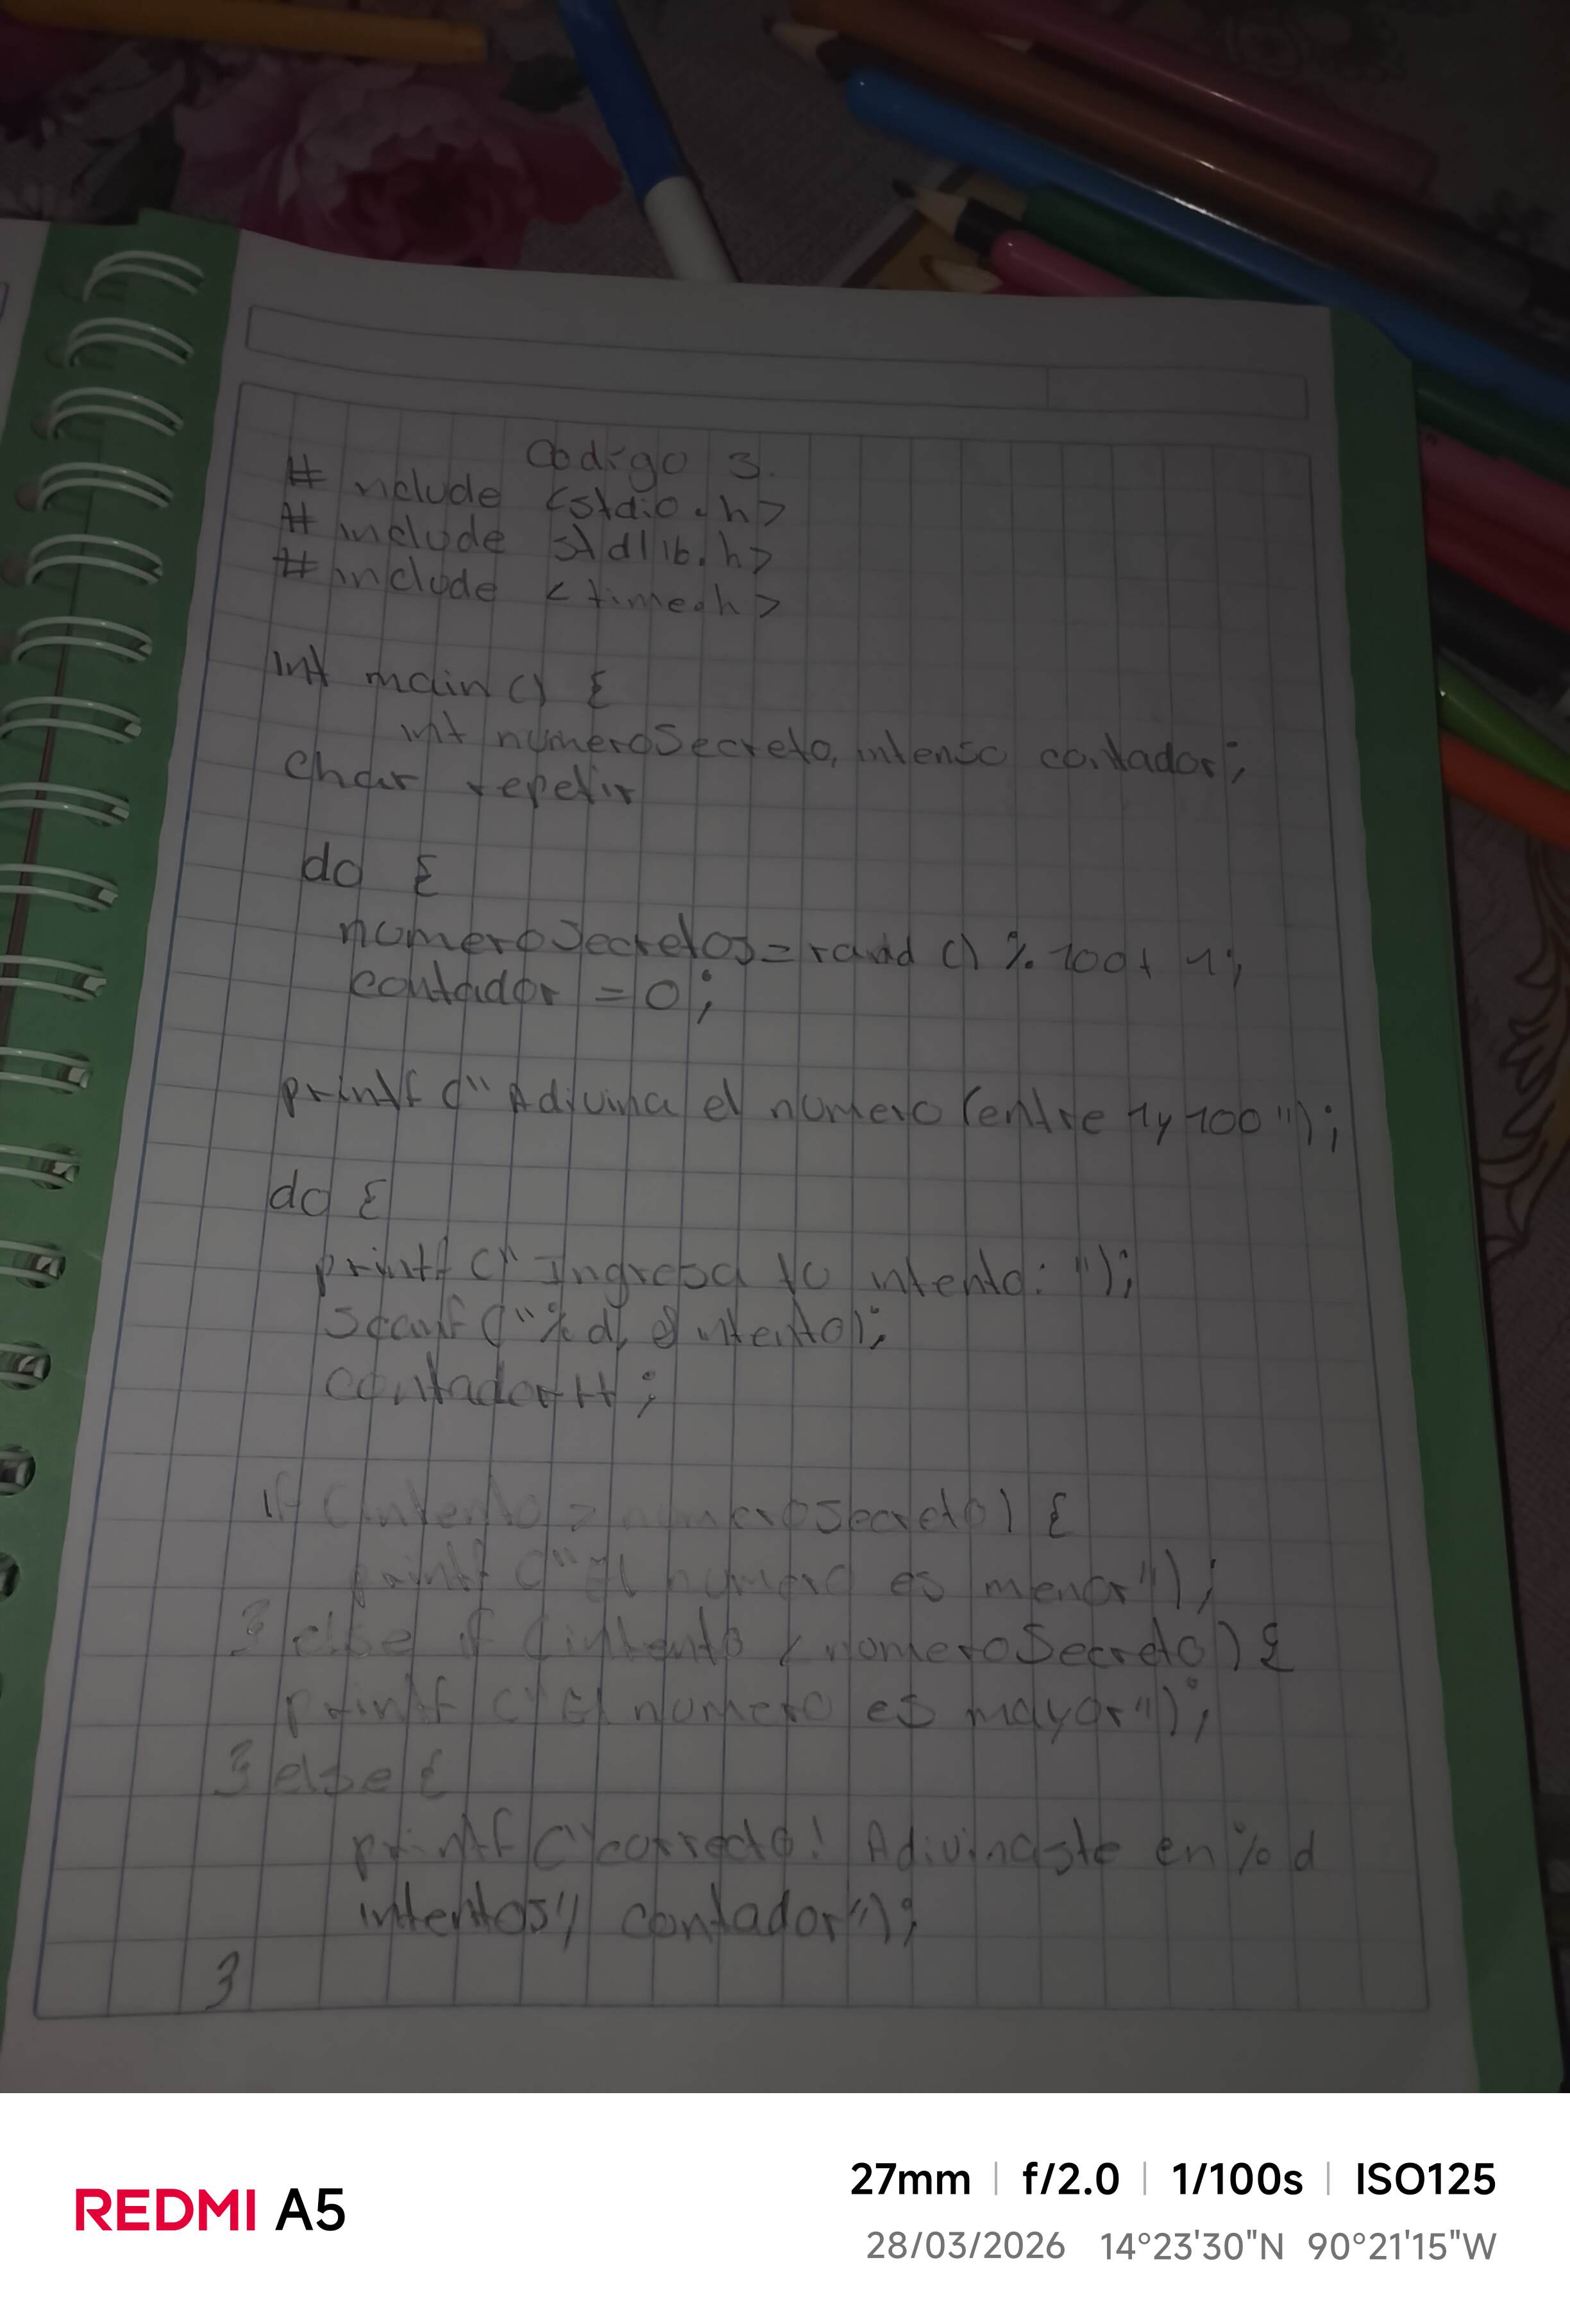 Codigo 3.
# include <stdio.h>
# include stdlib.h>
# include <time.h>
int main() {
int numeroSecreto, intenso contador;
char repetir
do {
numeroSecretos=rand () % 100+ 1;
contador = 0;
printf (" Adivina el numero (entre 1y 100 ");
do {
printf (" Ingresa tu intento: ");
scanf ("% d, & intento);
contador++;
if (intento > numeroSecreto) {
printf ("El numero es menor");
} else if (intento < numeroSecreto) {
printf ("El numero es mayor");
} else {
printf ("correcto! Adivinaste en % d
intentos", contador");
}
REDMI A5
27mm | f/2.0 | 1/100s | ISO125
28/03/2026 14°23'30"N 90°21'15"W